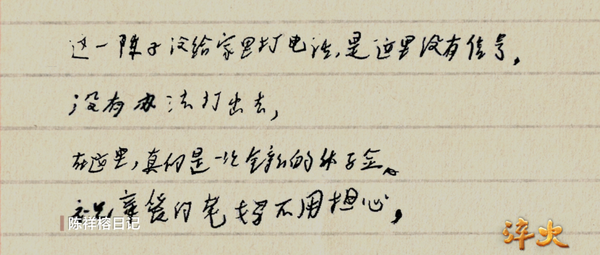 这一阵子没给家里打电话,是这里没有信号,
没有办法打出去,
在这里,真的是一次全新的体验。
不用担心,
陈祥榕日记
淬火